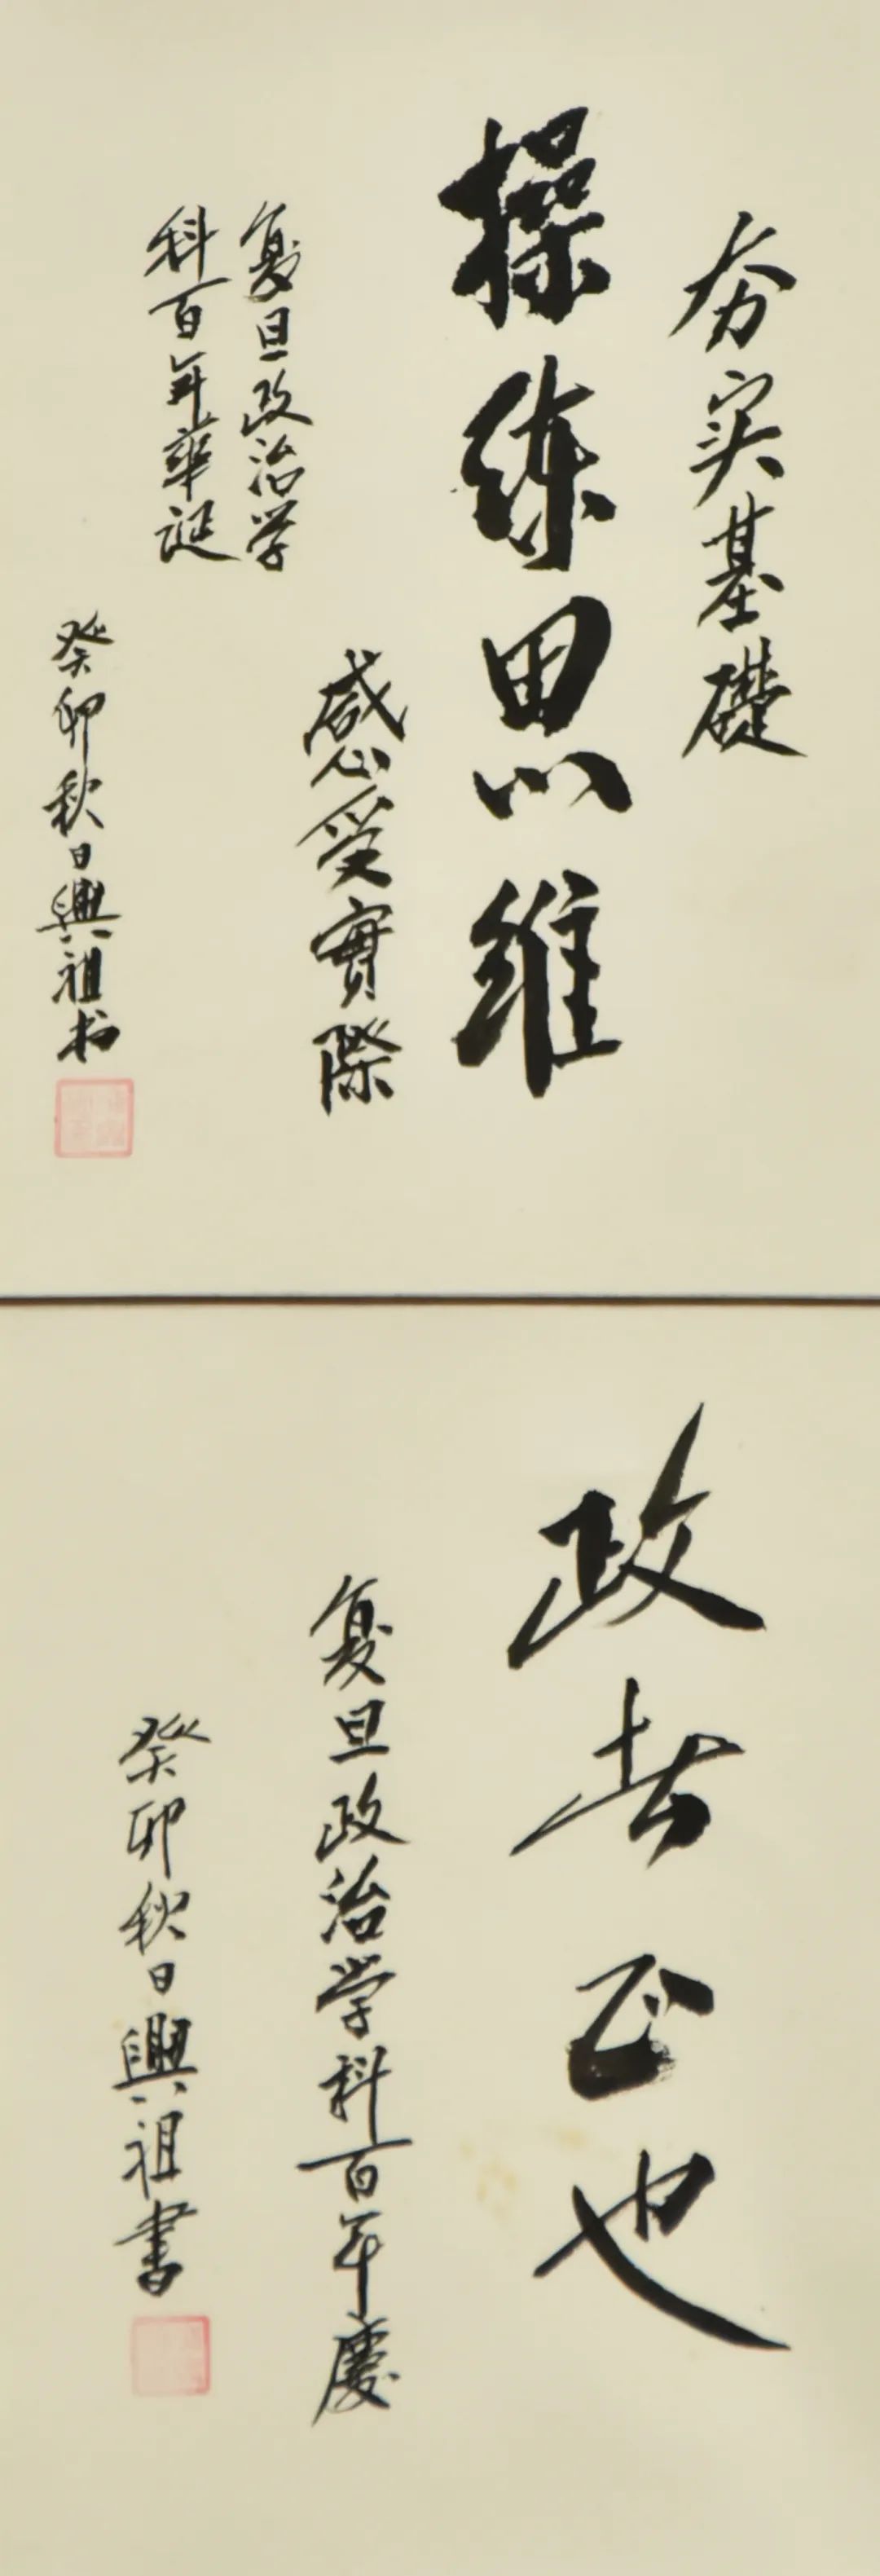 夯实基礎
操练思维
感受實際
复旦政治学
科百年華誕
癸卯秋日興祖书
政者正也
复旦政治学科百年慶
癸卯秋日興祖書